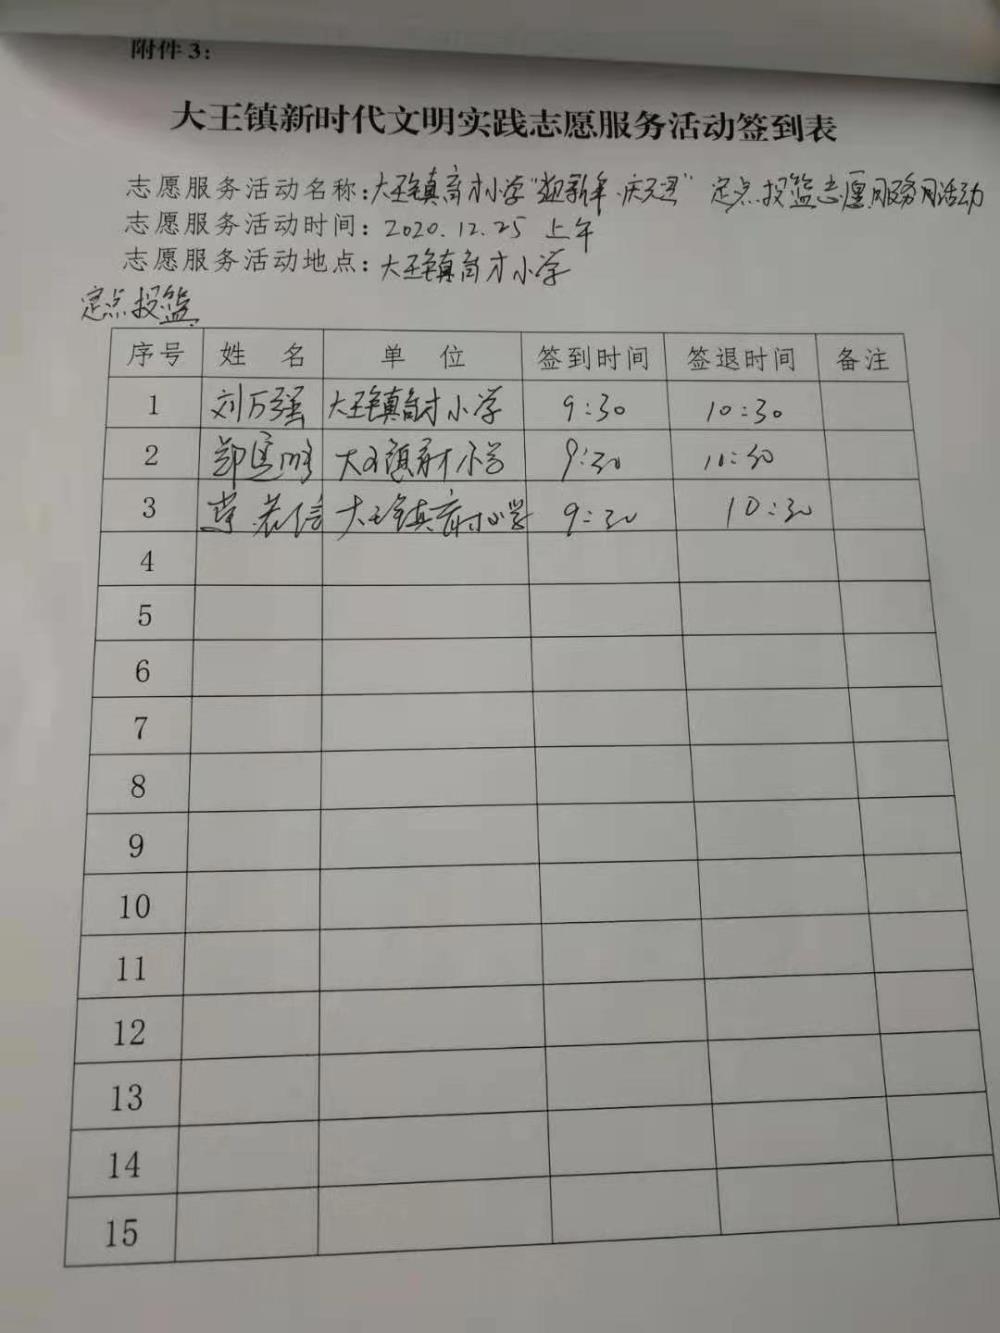 附件3：
大王镇新时代文明实践志愿服务活动签到表
志愿服务活动名称：大王镇育才小学“迎新年·庆元旦”定点投篮志愿服务活动
志愿服务活动时间：2020.12.25 上午
志愿服务活动地点：大王镇育才小学
定点投篮
序号 姓 名 单 位 签到时间 签退时间 备注
1 刘万强 大王镇育才小学 9:30 10:30
2 大王镇育才小学 9:30 10:30
3 大王镇育才小学 9:30 10:30
4
5
6
7
8
9
10
11
12
13
14
15